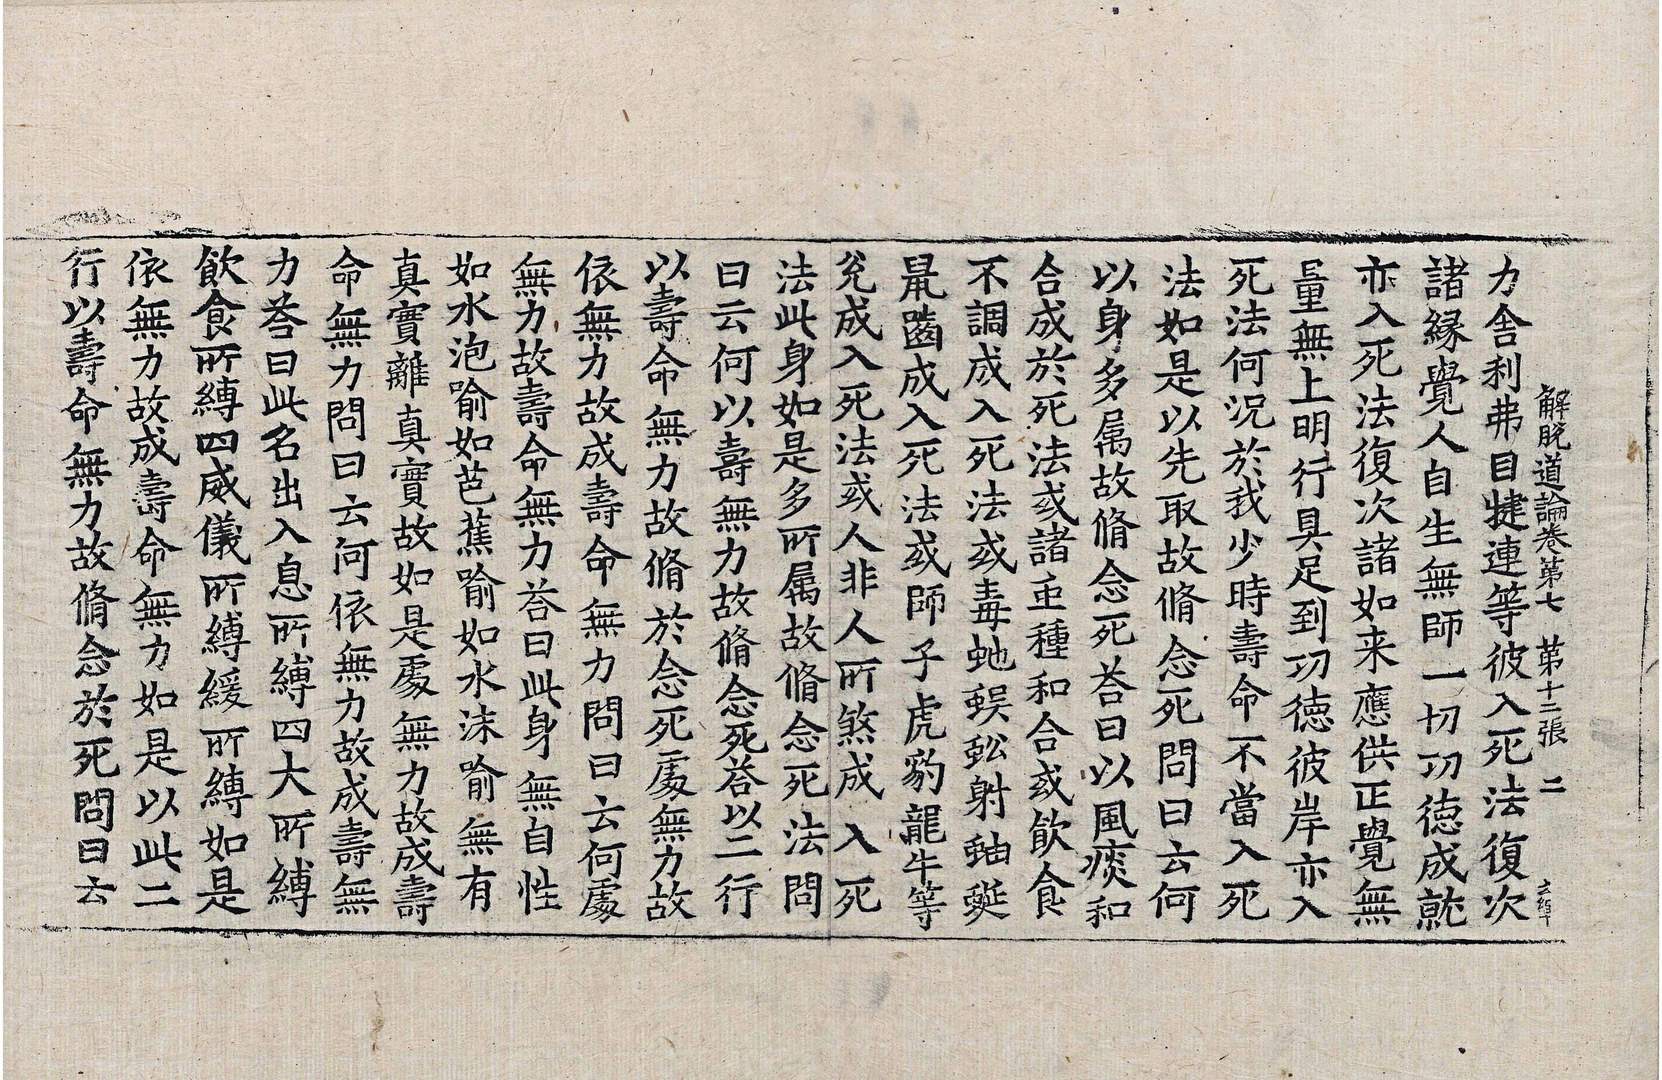 解脫道論卷第七 第十二張 二
力舍利弗目揵連等彼入死法復次
諸緣覺人自生無師一切功徳成就
亦入死法復次諸如来應供正覺無
量無上明行具足到功徳彼岸亦入
死法何況於我少時壽命不當入死
法如是以先取故脩念死問曰云何
以身多属故脩念死荅曰以風痰和
合成於死法或諸虫種和合或飲食
不調成入死法或毒虵蜈蚣射蚰蜒
鼠齧成入死法或師子虎豹龍牛等
兊成入死法或人非人所煞成入死
法此身如是多所属故脩念死法問
曰云何以壽無力故脩念死荅以二行
以壽命無力故脩於念死處無力故
依無力故成壽命無力問曰云何處
無力故壽命無力荅曰此身無自性
如水泡喻如芭蕉喻如水沫喻無有
真實離真實故如是處無力故成壽
命無力問曰云何依無力故成壽無
力荅曰此名出入息所縛四大所縛
飲食所縛四威儀所縛緩所縛如是
依無力故成壽命無力如是以此二
行以壽命無力故脩念於死問曰云